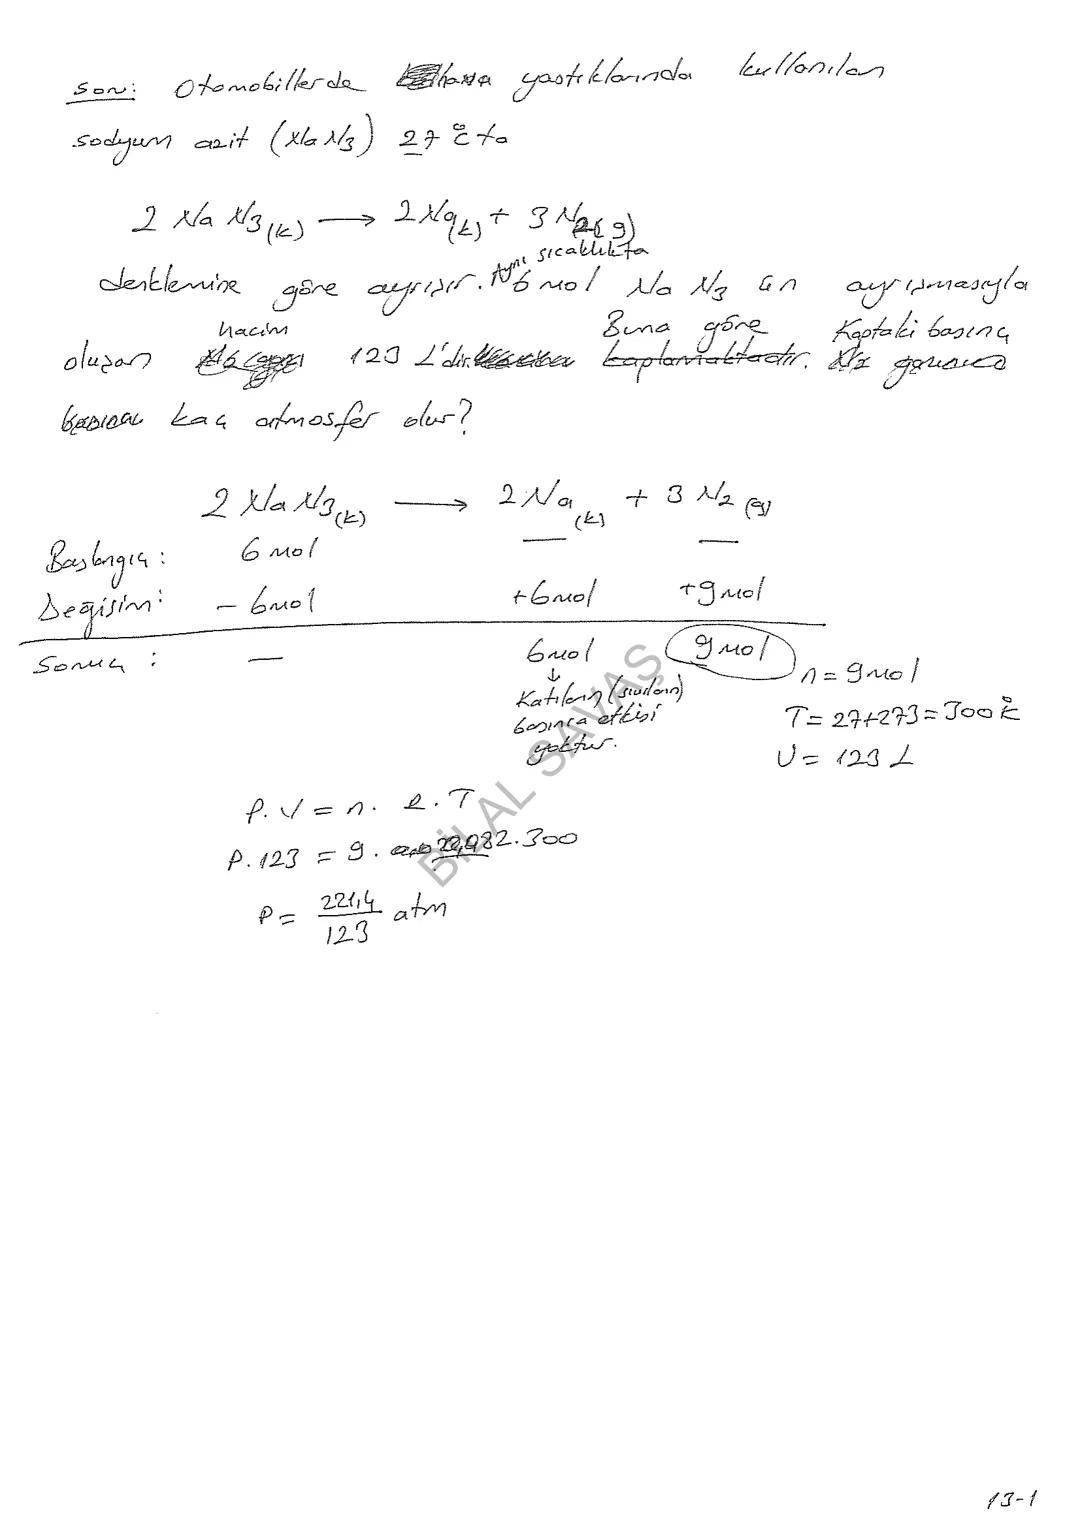 Soru: Otomobillerde hava yastıklarında kullanılan
sodyum azit (NaN3) 27 °C ta
2 NaN3(k) → 2Na(k) + 3N2(g)
Aynı sıcaklıkta
denklemine göre ayrışır. 6 mol NaN3 ün ayrışmasıyla
hacim Buna göre Kaptaki basınç
oluşan 123 L'dir. kaplamaktadır.
kaç atmosfer olur?
2 NaN3(k) → 2Na(k) + 3 N2(g)
Başlangıç: 6 mol — —
Değişim: -6mol +6mol +9mol
Sonuç: — 6mol 9mol
n=9mol
↓
Katıların (sıvıların)
basınca etkisi
yoktur.
T=27+273=300°K
V= 123 L
P.V=n.R.T
P.123 = 9. 22,4 82.300
P= 221,4/123 atm
BİLAL SAVAŞ
13-1